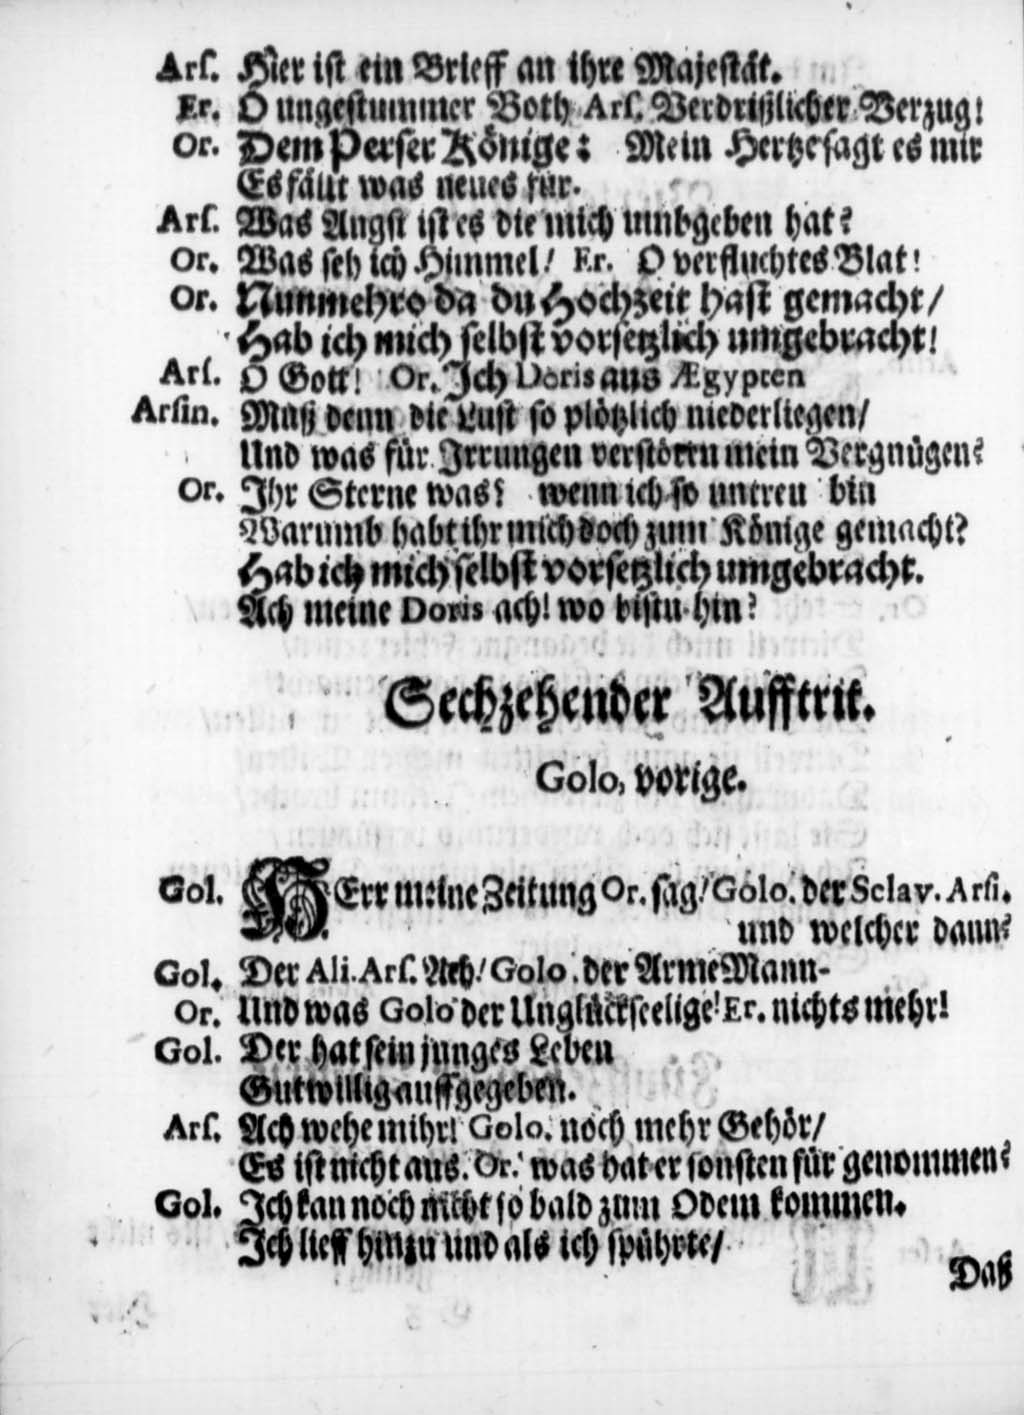 Arſ. Hier iſt ein Brieff an ihre Majeſtät.
Er. O ungeſtummer Both Arſ. Verdrißlicher Verzug!
Or. Dem Perſer Könige: Mein Hertze ſagt es mir
Es fällt was neues für.
Arſ. Was Angſt iſt es die mich umbgeben hat?
Or. Was ſeh ich Himmel! Er. O verfluchtes Blat!
Or. Nunmehro da du Hochzeit haſt gemacht/
Hab ich mich ſelbſt vorſetzlich umgebracht!
Arſ. O Gott! Or. Ich Doris aus Ægypten
Arſin. Muß denn die Luſt ſo plötzlich niederliegen/
Und was für Irrungen verſtörrn mein Vergnügen?
Or. Ihr Sterne was? wenn ich ſo untreu bin
Warumb habt ihr mich doch zum Könige gemacht?
Hab ich mich ſelbſt vorſetzlich umgebracht.
Ach meine Doris ach! wo biſtu hin?
Sechzehender Aufftrit.
Golo, vorige.
Gol. HErr meine Zeitung Or. ſag! Golo. der Sclav. Arſi.
und welcher dann?
Gol. Der Ali. Arſ. Ach! Golo. der Arme Mann-
Or. Und was Golo der Unglückſeelige! Er. nichts mehr!
Gol. Der hat ſein junges Leben
Gutwillig auffgegeben.
Arſ. Ach wehe mihr! Golo. noch mehr Gehör/
Es iſt nicht aus. Or. was hat er ſonſten für genommen?
Gol. Ich kan noch nicht ſo bald zum Odem kommen.
Ich lieff hinzu und als ich ſpührte/
Daß